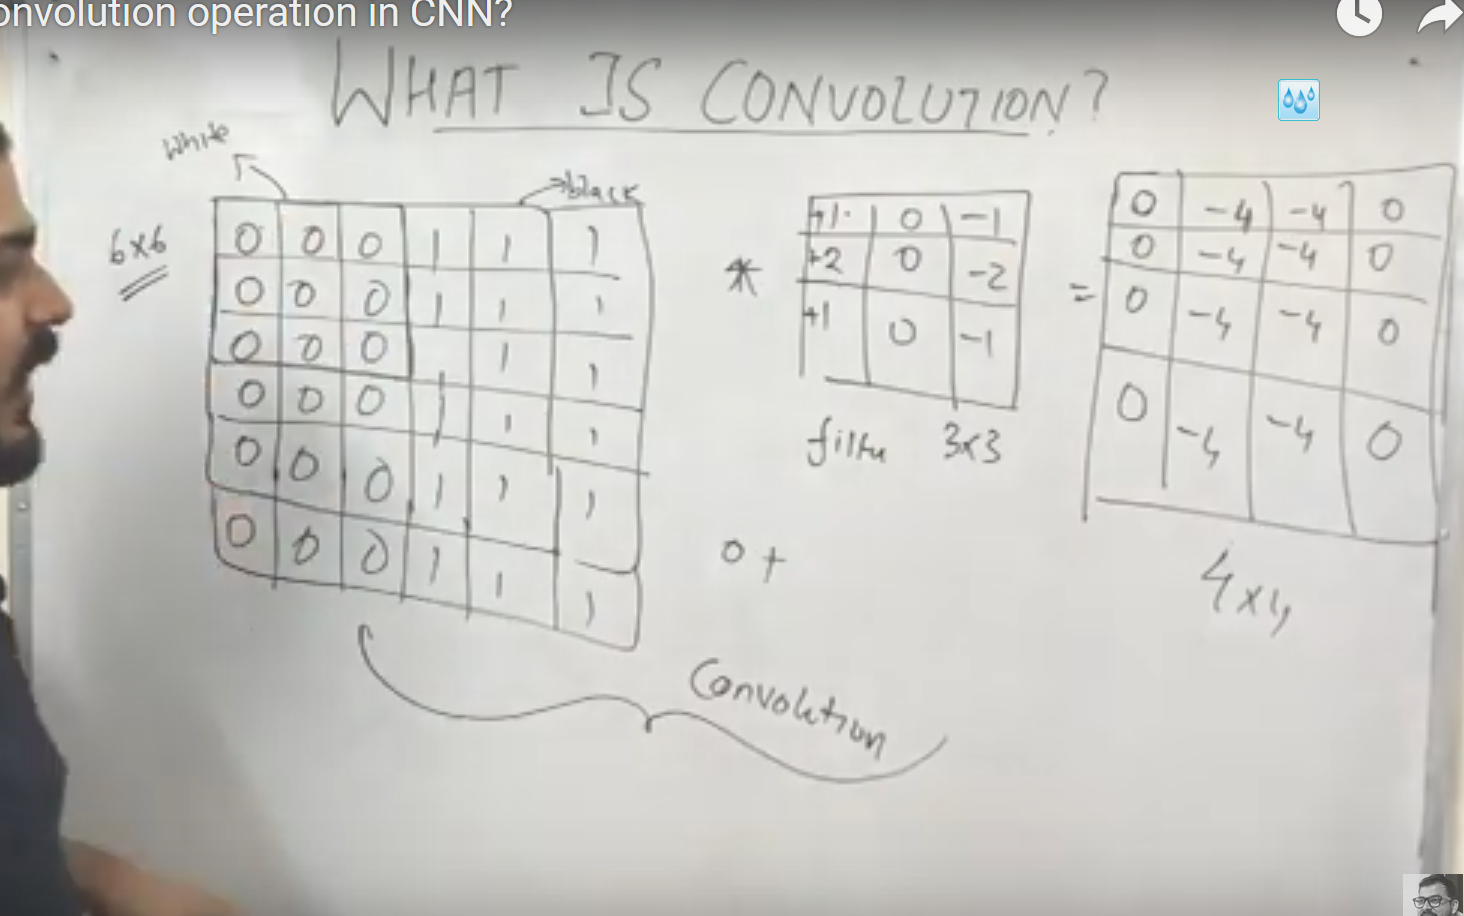 onvolution operation in CNN?
WHAT IS CONVOLUTION?
White
black
6x6
0 0 0 1 1 1
0 0 0 1 1 1
0 0 0 1 1
0 0 0 1 1 1
0 0 0 1 1 1
0 0 0 1 1 1
*
+1 0 -1
+2 0 -2
+1 0 -1
filter 3x3
=
0 -4 -4 0
0 -4 -4 0
0 -4 -4 0
0 -4 -4 0
4x4
0 +
Convolution